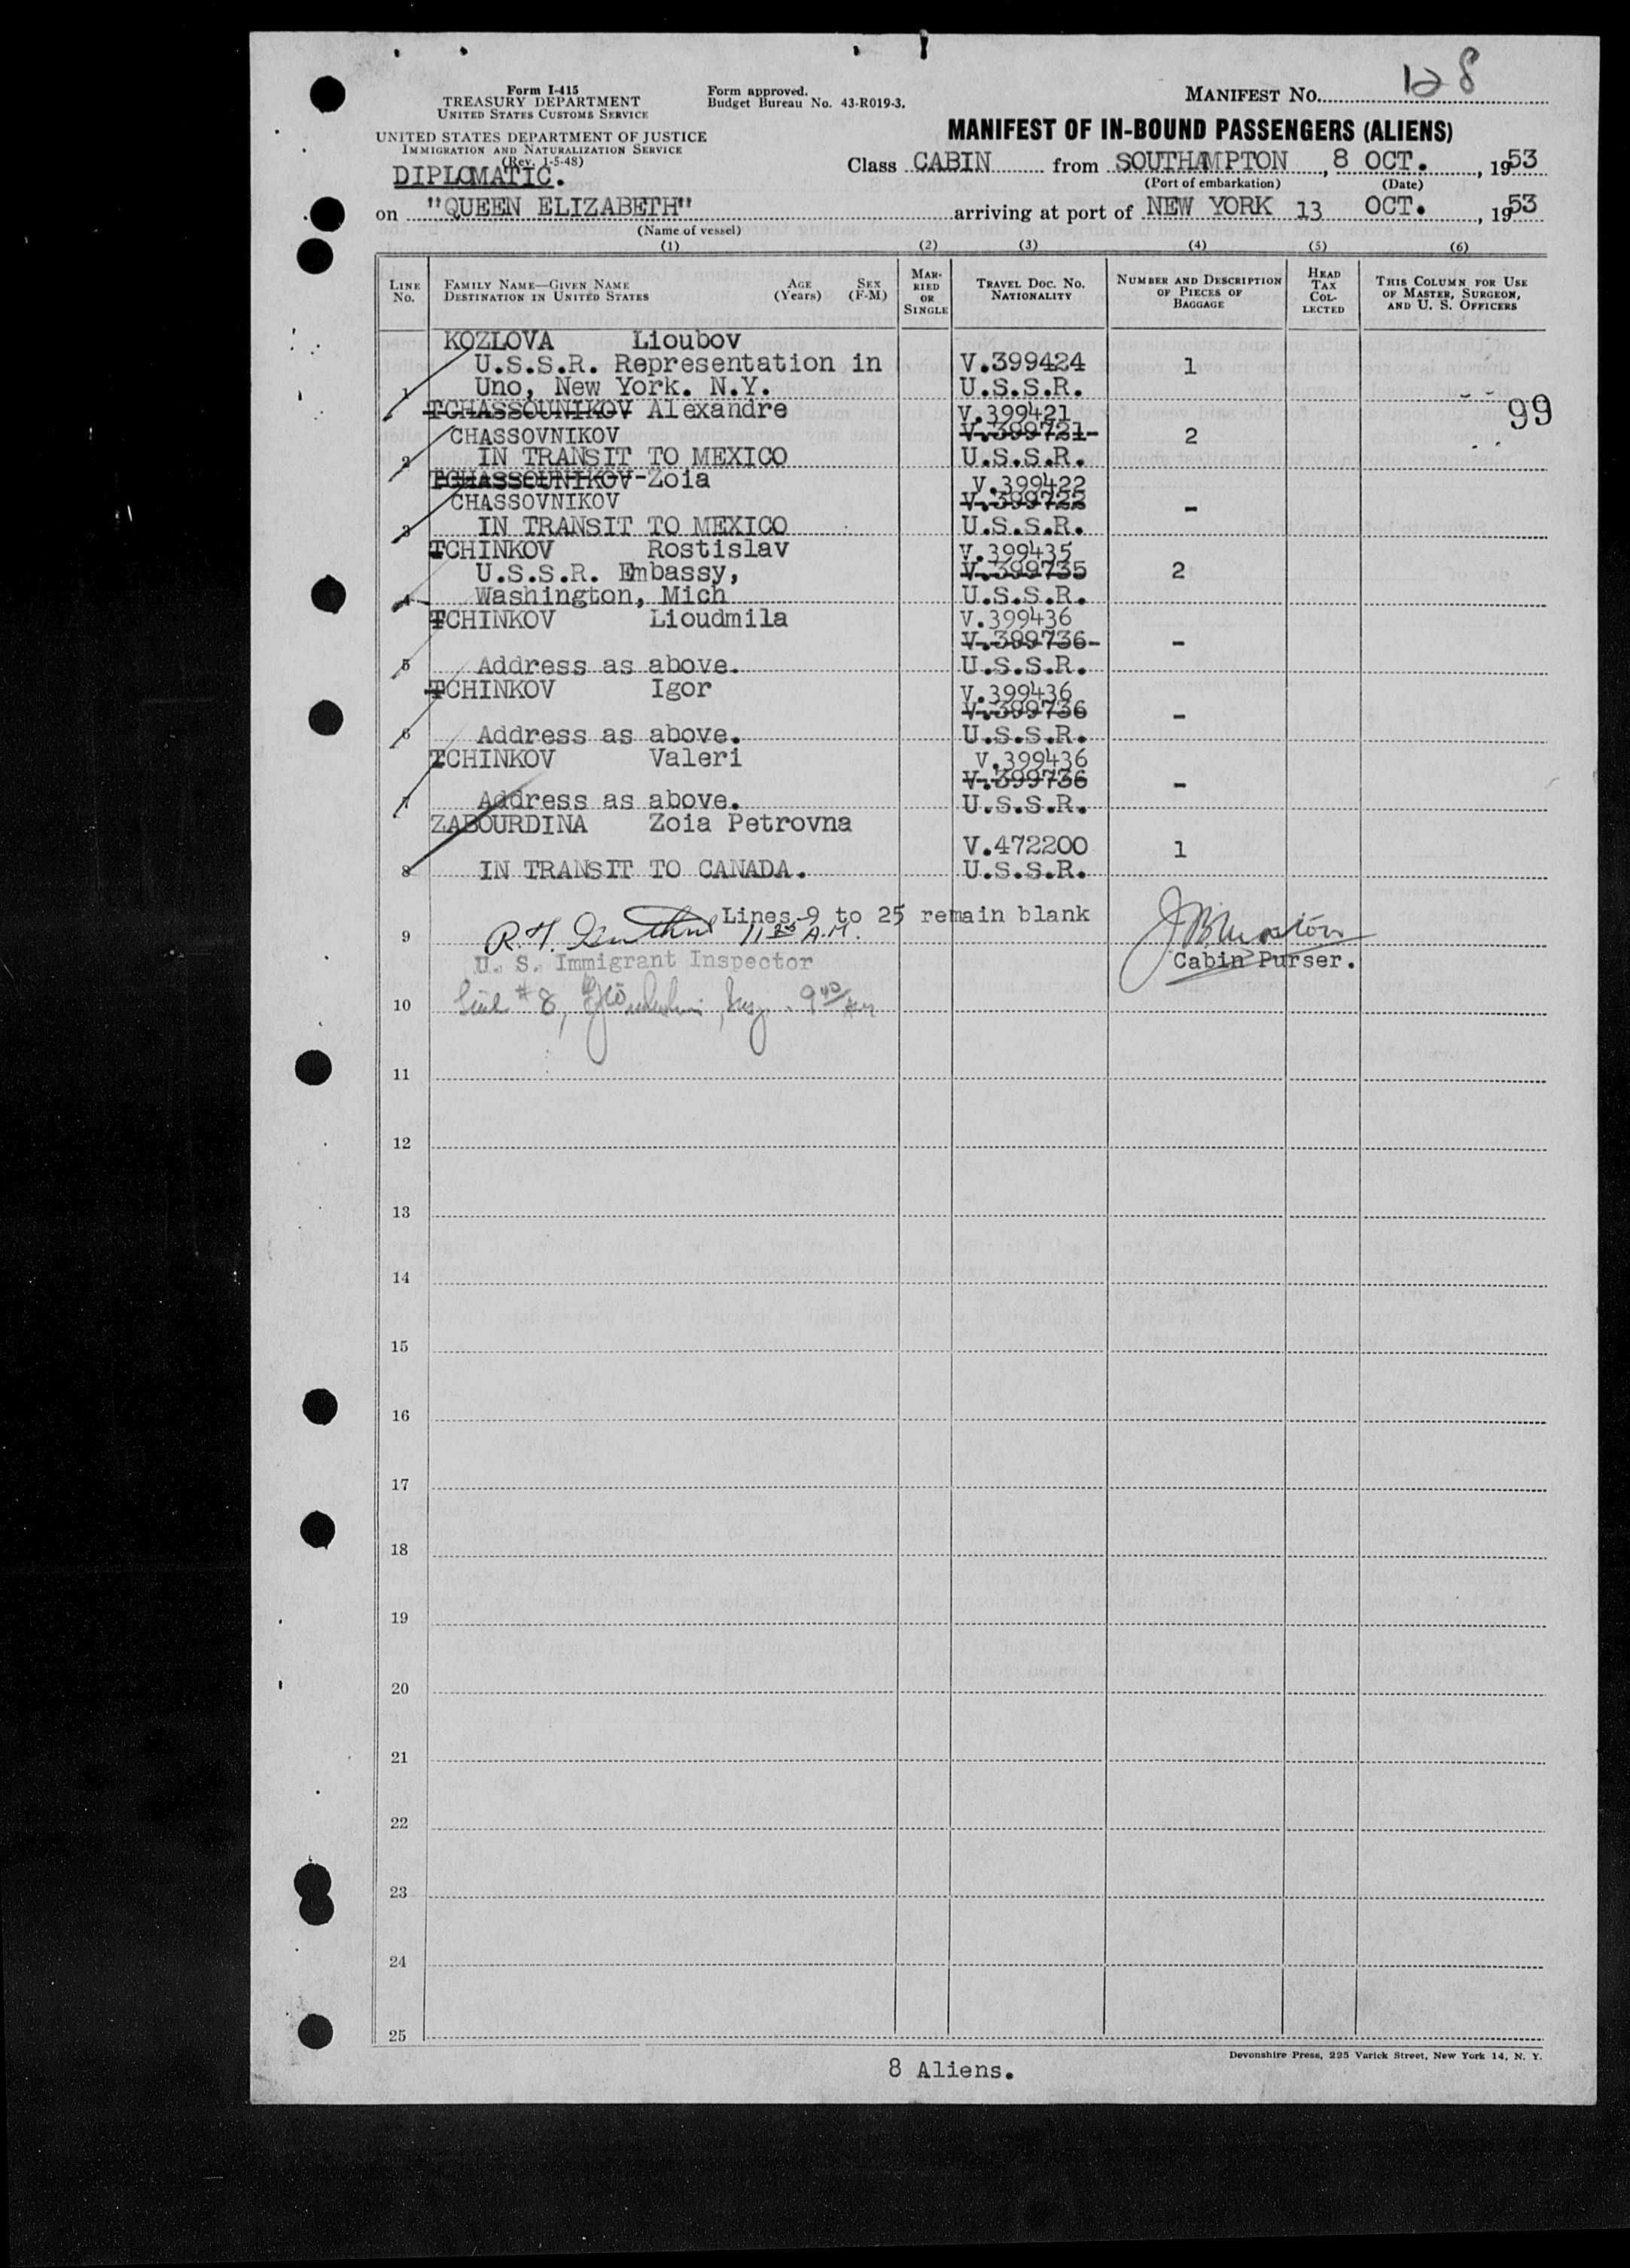 Form I-415
TREASURY DEPARTMENT
UNITED STATES CUSTOMS SERVICE
UNITED STATES DEPARTMENT OF JUSTICE
IMMIGRATION AND NATURALIZATION SERVICE
(Rev. 1-5-48)
DIPLOMATIC.
Form approved.
Budget Bureau No. 43-R019-3.
MANIFEST NO. 128
MANIFEST OF IN-BOUND PASSENGERS (ALIENS)
Class CABIN from SOUTHAMPTON, 8 OCT., 1953
(Port of embarkation) (Date)
on "QUEEN ELIZABETH" arriving at port of NEW YORK 13 OCT., 1953
(Name of vessel)
(1) (2) (3) (4) (5) (6)
LINE No.
FAMILY NAME—GIVEN NAME
DESTINATION IN UNITED STATES
AGE (Years)
SEX (F-M)
MARRIED OR SINGLE
TRAVEL DOC. NO. NATIONALITY
NUMBER AND DESCRIPTION OF PIECES OF BAGGAGE
HEAD TAX COLLECTED
THIS COLUMN FOR USE OF MASTER, SURGEON, AND U. S. OFFICERS
KOZLOVA Lioubov
U.S.S.R. Representation in V.399424 1
1 Uno, New York. N.Y. U.S.S.R.
99
TCHASSOUNIKOV Alexandre V.399421
CHASSOVNIKOV V.399721- 2
2 IN TRANSIT TO MEXICO U.S.S.R.
TCHASSOUNIKOV-Zoia V.399422
CHASSOVNIKOV V.399722 -
3 IN TRANSIT TO MEXICO U.S.S.R.
TCHINKOV Rostislav V.399435
U.S.S.R. Embassy, V.399735 2
4 Washington, Mich U.S.S.R.
TCHINKOV Lioudmila V.399436
V.399736- -
5 Address as above. U.S.S.R.
TCHINKOV Igor V.399436
V.399736 -
6 Address as above. U.S.S.R.
TCHINKOV Valeri V.399436
V.399736 -
7 Address as above. U.S.S.R.
ZABOURDINA Zoia Petrovna
V.472200 1
8 IN TRANSIT TO CANADA. U.S.S.R.
Lines 9 to 25 remain blank
9 R. 11 25 A.M.
U. S. Immigrant Inspector Cabin Purser.
10 Line # 8, 9 40
11
12
13
14
15
16
17
18
19
20
21
22
23
24
25
Devonshire Press, 225 Varick Street, New York 14, N. Y.
8 Aliens.